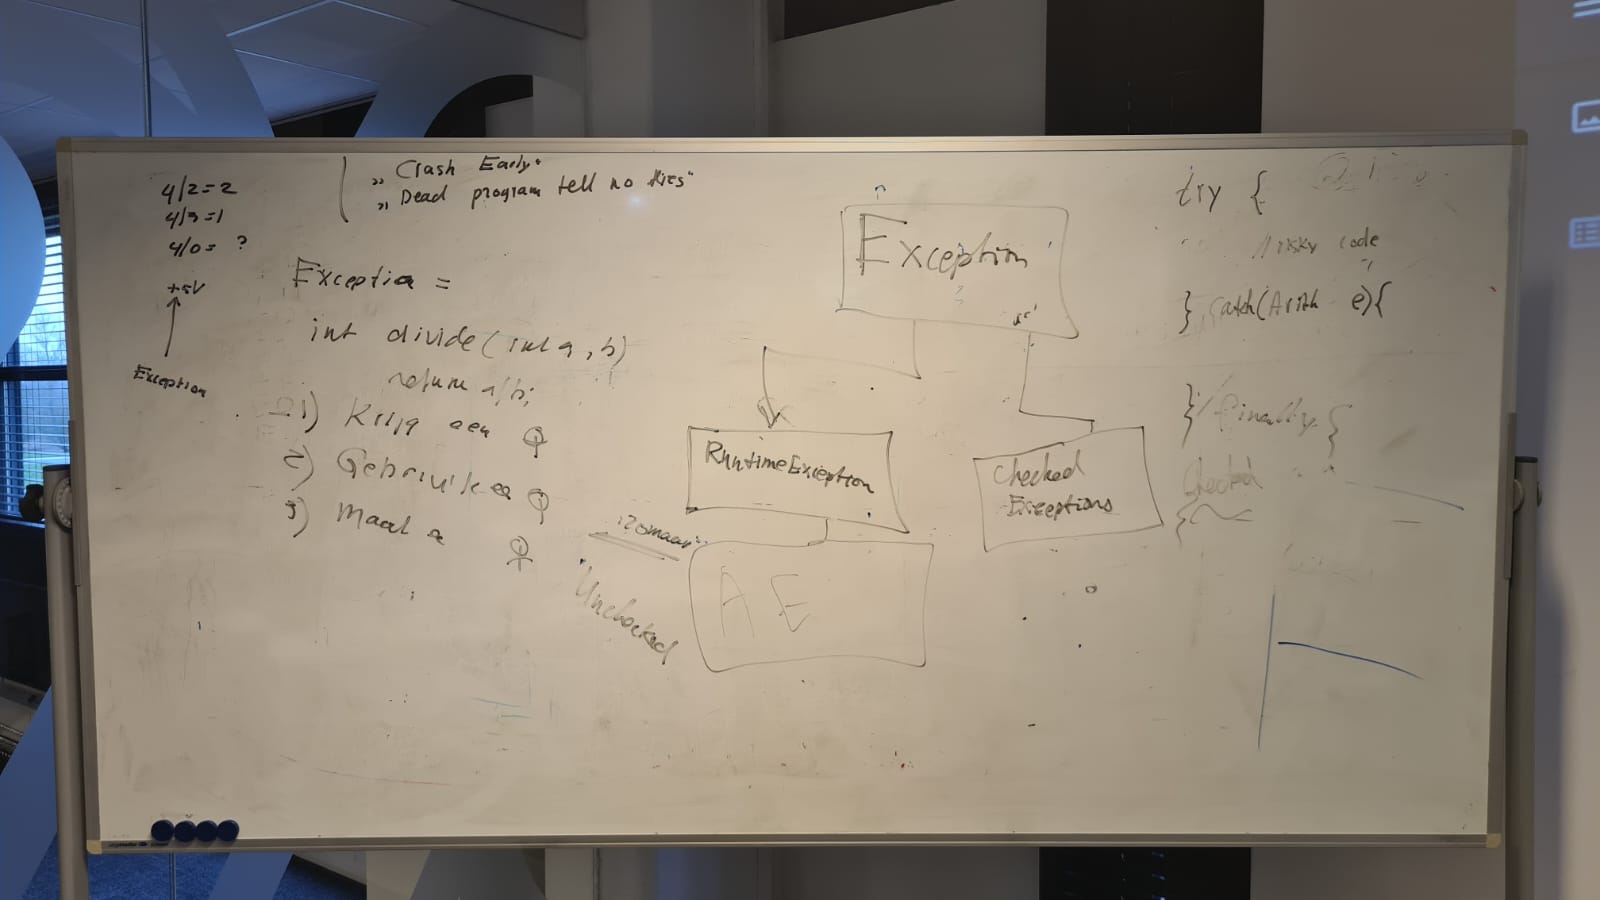 4/2=2
4/3=1
4/0= ?
+5V
Exception
„ Crash Early"
„ Dead program tell no lies"
Exception =
int divide(int a, b)
return a/b;
1) Krijg een
2) Gebruik een
3) Maak
Exception
RuntimeException
Checked
Exceptions
"zomaar"
Unchecked
AE
try {
//risky code
} catch(Arith e){
} finally {
Checked